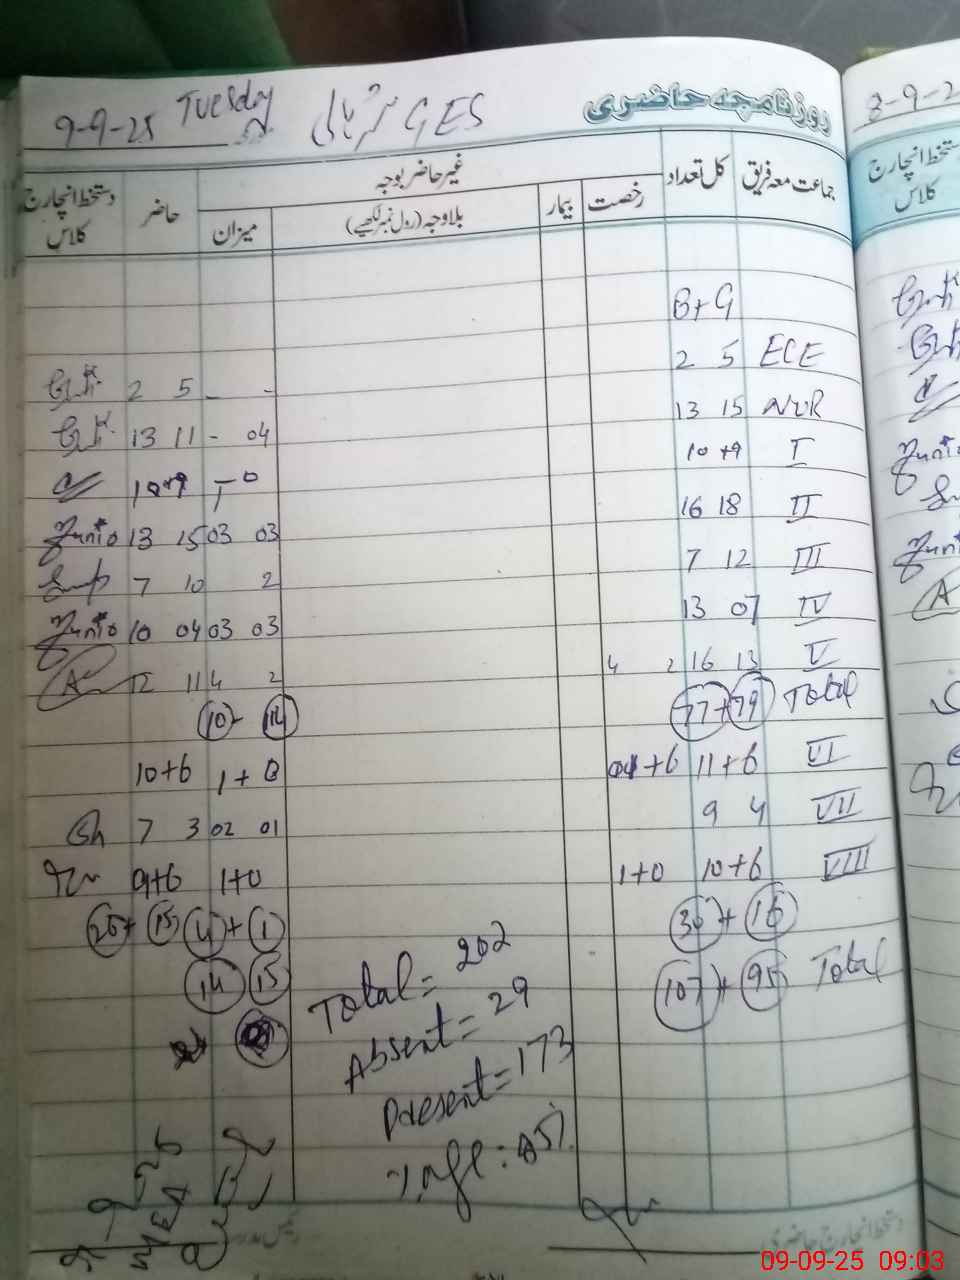 روزنامچہ حاضری
9-9-25 Tuesday GES
8-9-2
جماعت معہ فریق کل تعداد غیر حاضر بوجہ حاضر دستخط انچارج کلاس
رخصت بیمار بلاوجہ (رول نمبر لکھیے) میزان
دستخط انچارج کلاس
B+G
2 5 ECE
2 5 - -
13 15 NUR
13 11 - 04
10 +9 I
10+9 - 0
16 18 II
Junio 13 15 03 03
7 12 III
7 10 2
13 07 IV
Junio 10 04 03 03
4 2 16 13 V
12 11 4 2
10 - 14
77+79 Total
10+6 1+0
+6 11+6 VI
Sh 7 3 02 01
9 4 VII
9+6 1+0
1+0 10+6 VIII
26+ 15 4+1
30+16
14 15
107+95 Total
Total= 202
Absent= 29
Present= 173
%age: 85%
دستخط انچارج حاضری
رئیس مدرسہ
09-09-25 09:03